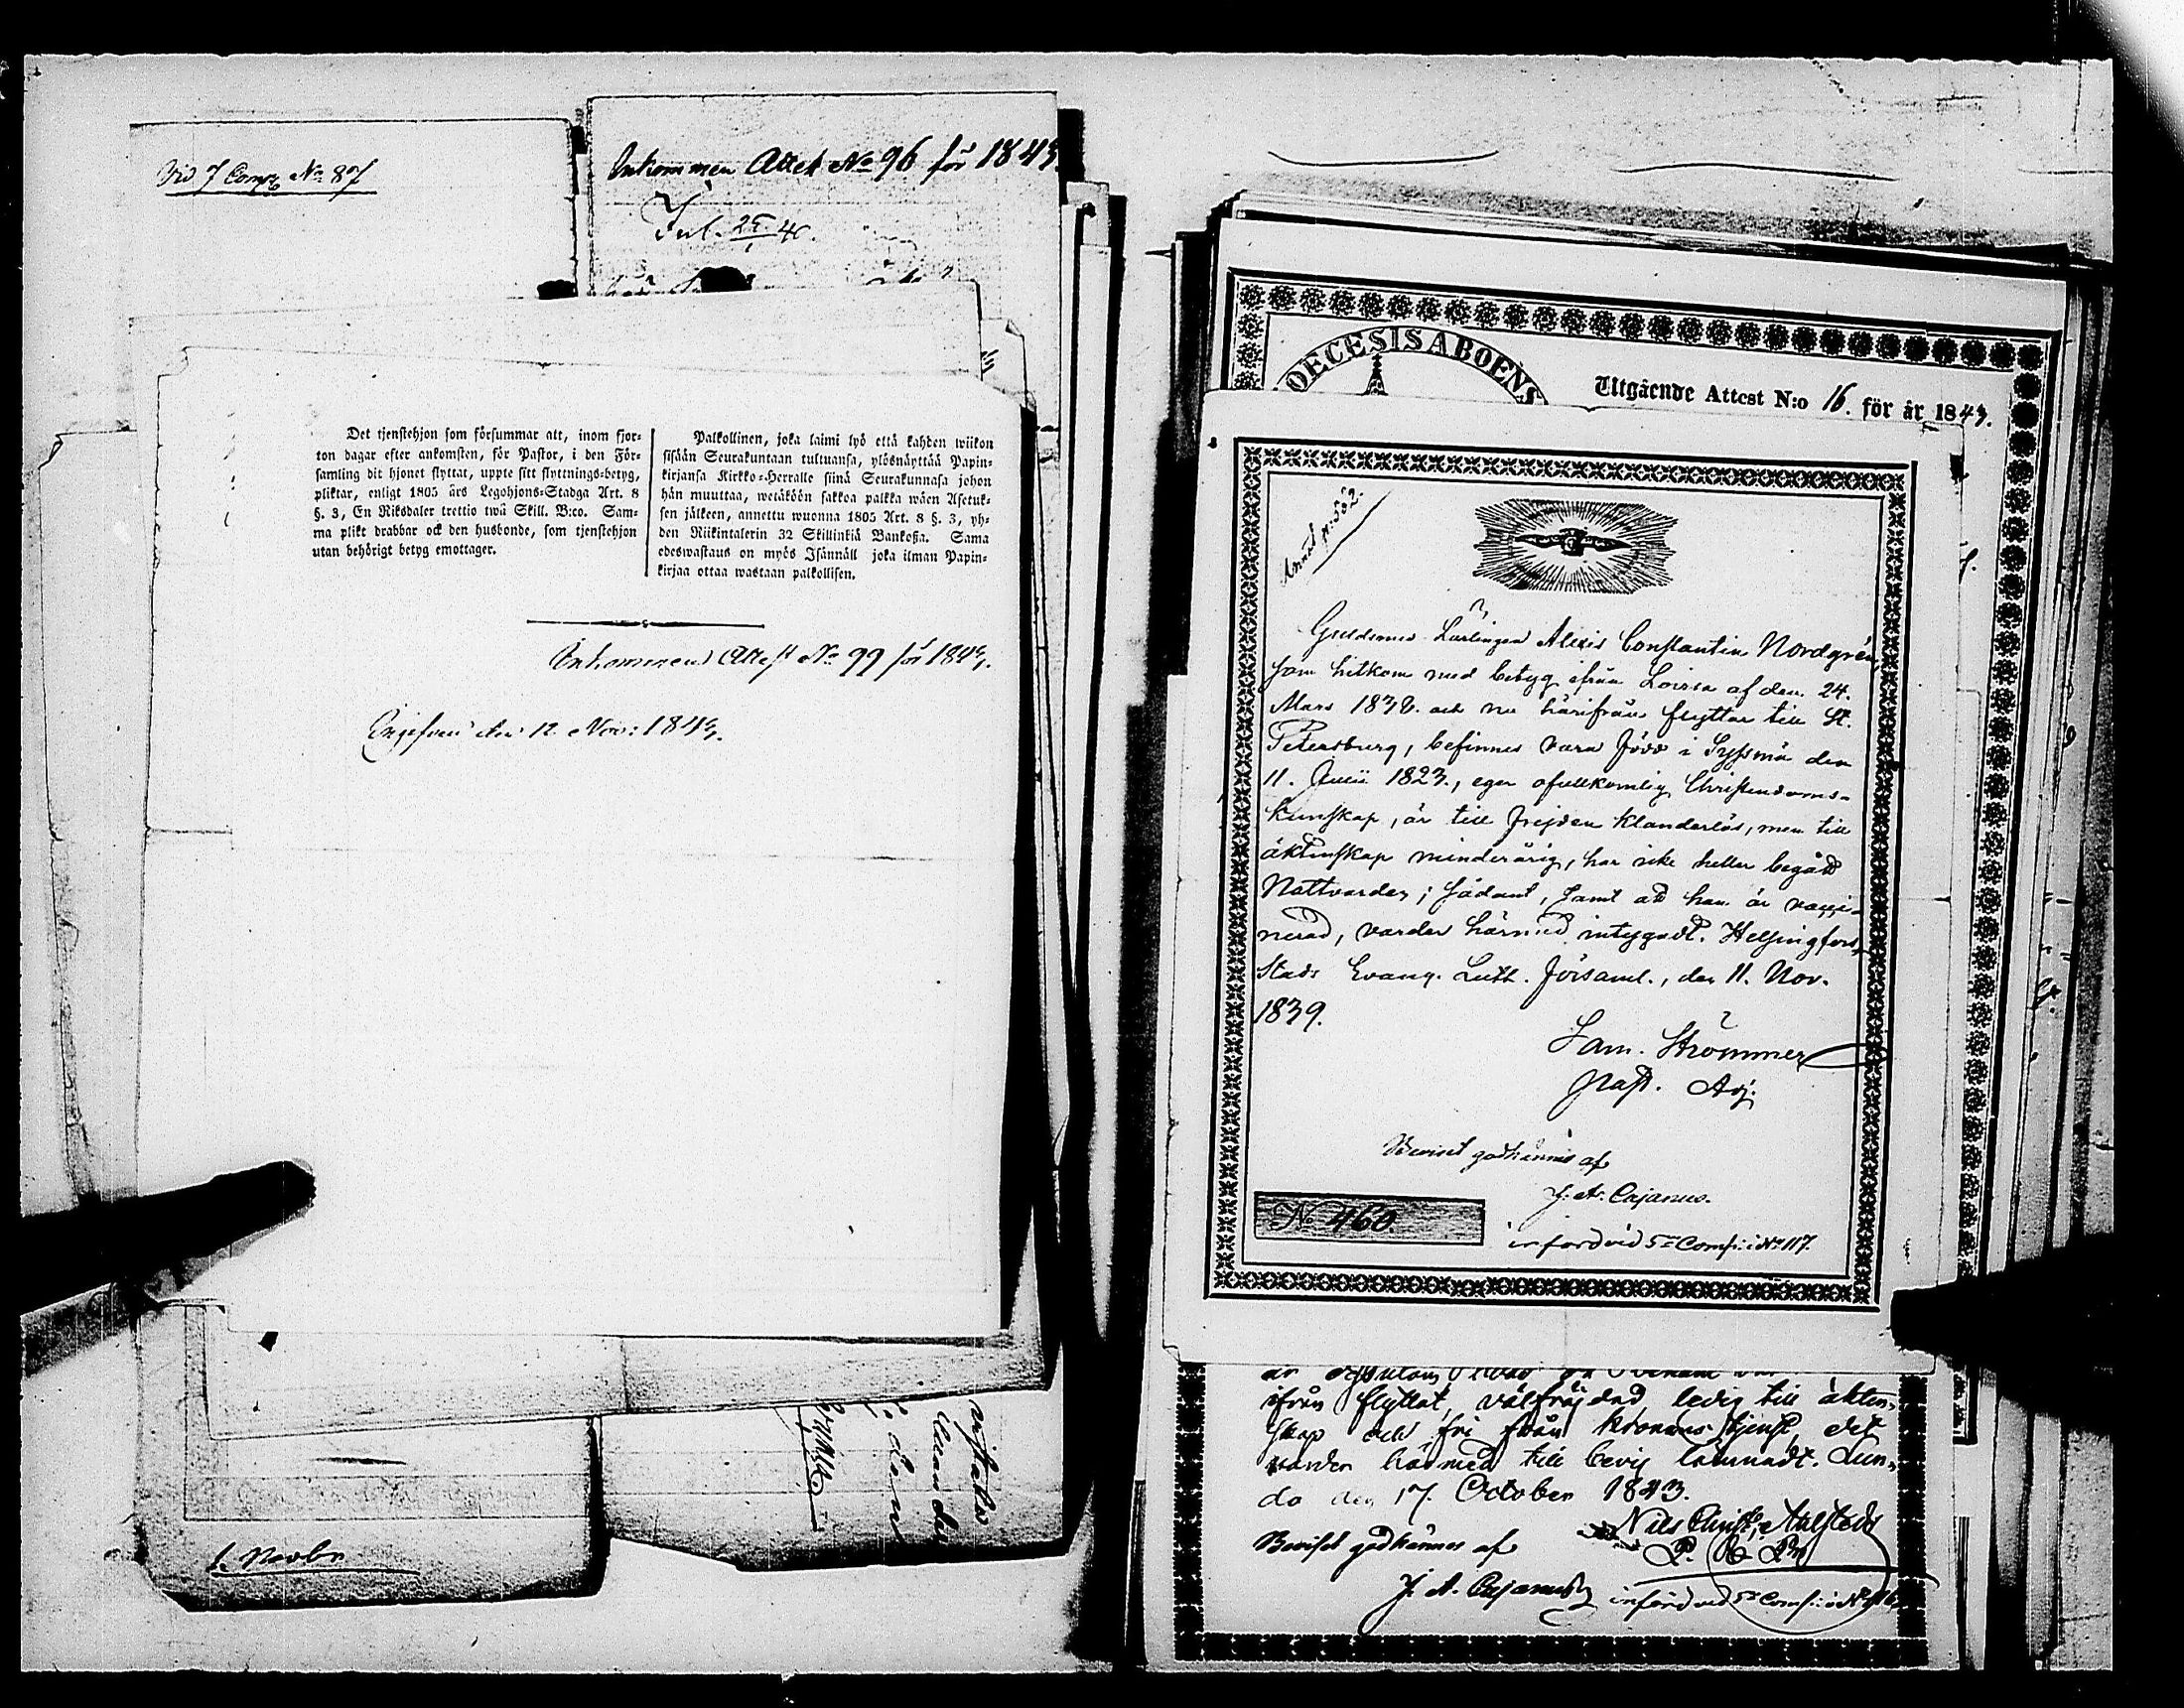 Vid 7 Comp: No 87
Inkommen Attest No 96 för 1843.
Jul.
Det tjenstehjon som försummar att, inom fjor-
ton dagar efter ankomsten, för Pastor, i den För-
samling dit hjonet flyttat, uppte sitt flyttnings-betyg,
pliktar, enligt 1805 års Legohjons-Stadga Art. 8
§. 3, En Riksdaler trettio twå Skill. B:co. Sam-
ma plikt drabbar ock den husbonde, som tjenstehjon
utan behörigt betyg emottager.
Palkollinen, joka laimi lyö että kahden wiikon
sisään Seurakuntaan tultuansa, ylösnäyttää Papin-
kirjansa Kirkko-Herralle siinä Seurakunnasa johon
hän muuttaa, wetäköön sakkoa palkka wäen Asetuk-
sen jälkeen, annettu wuonna 1805 Art. 8 §. 3, yh-
den Riikintalerin 32 Skillinkiä Bankoßa. Sama
edeswastaus on myös Isännäll joka ilman Papin-
kirjaa ottaa wastaan palkollisen.
Inkommen Attest No 99 för 1843.
Ingifven den 12 Nov: 1843.
OECESIS ABOENS
Utgående Attest N:o 16. för år 1843.
Guldsmeds Lärlingen Alexis Constantin Nordgrén,
som hitkom med betyg ifrån Lovisa af den 24.
Mars 1838. och nu härifrån flyttar till St.
Petersburg, befinnes vara född i Syssmä den
11. Junii 1823., eger ofullkomlig Christendoms-
kunskap, är till frejden klanderlös, men till
äktenskap minderårig, har icke heller begått
Nattvarden; sådant, samt att han är vacci-
nerad, varder härmed intygadt. Helsingfors
Stads Evang. Luth. Församl., den 11. Nov.
1839.
Sam. Strömmer
Past. Adj.
Beviset godkännes af
J. A. Cajanus.
No 460.
införd vid 5te Comp: i No 117.
ifrån flyttat, välfräjdad, ledig till äkten-
skap och fri från kronans tjenst, det
varder härmed till bevis lämnadt. Lun-
do den 17. October 1843.
Nils Christ. Ahlstedt
Beviset godkännes af
J. A. Cajanus
införd vid 5te Comp: i No 116